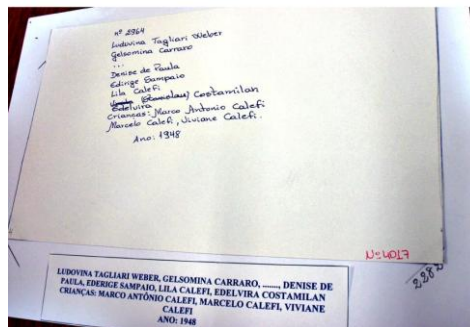 nº 2964
Ludovina Tagliari Weber
Gelsomina Carraro
...
Denise de Paula
Edirige Sampaio
Lila Calefi
Edelvira (Stanislau) Costamilan
Crianças: Marco Antonio Calefi
Marcelo Calefi, Viviane Calefi.
Ano: 1948
Nº 4017
2282
LUDOVINA TAGLIARI WEBER, GELSOMINA CARRARO, ......., DENISE DE
PAULA, EDERIGE SAMPAIO, LILA CALEFI, EDELVIRA COSTAMILAN
CRIANÇAS: MARCO ANTÔNIO CALEFI, MARCELO CALEFI, VIVIANE
CALEFI
ANO: 1948